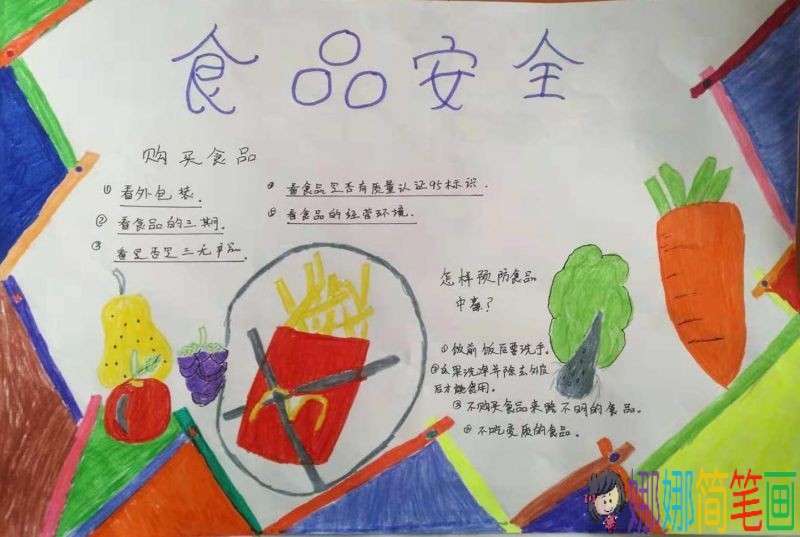 食品安全
购买食品
① 看外包装.
② 看食品的三期.
③ 看是否是三无产品.
④ 看食品是否有质量认证QS标识.
⑤ 看食品的经营环境.
怎样预防食品
中毒?
①饭前饭后要洗手.
②瓜果洗净并除去外皮
后才能食用.
③不购买食品来路不明的食品.
④不吃变质的食品.
娜娜简笔画